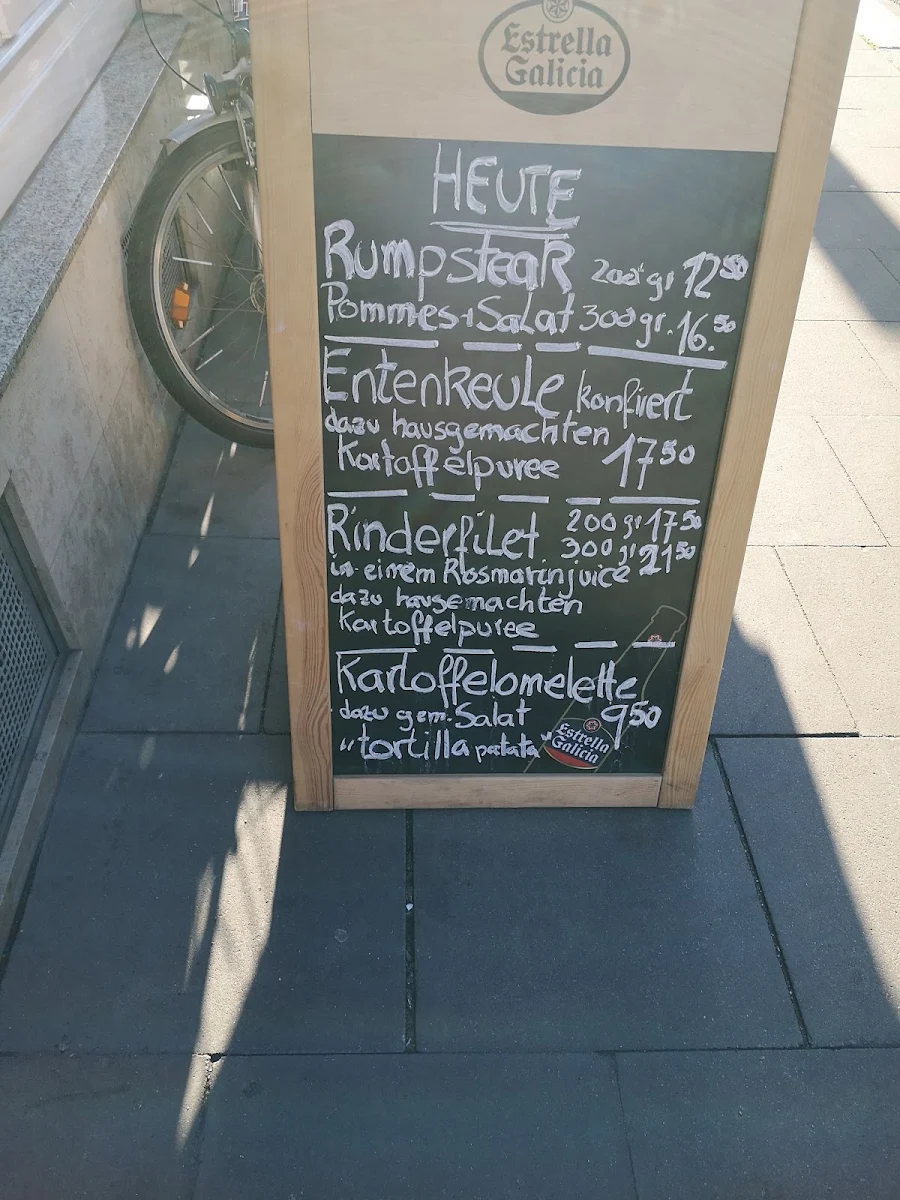 Estrella
Galicia
HEUTE
Rumpsteak 200 gr 12 50
Pommes + Salat 300 gr. 16. 50
Entenkeule konfiert
dazu hausgemachten
Kartoffelpuree 17 50
Rinderfilet 200 gr 17 50
300 gr 21 50
in einem Rosmarinjuice
dazu hausgemachten
Kartoffelpuree
Kartoffelomelette
dazu gem. Salat 9 50
"tortilla patata"
Estrella
Galicia